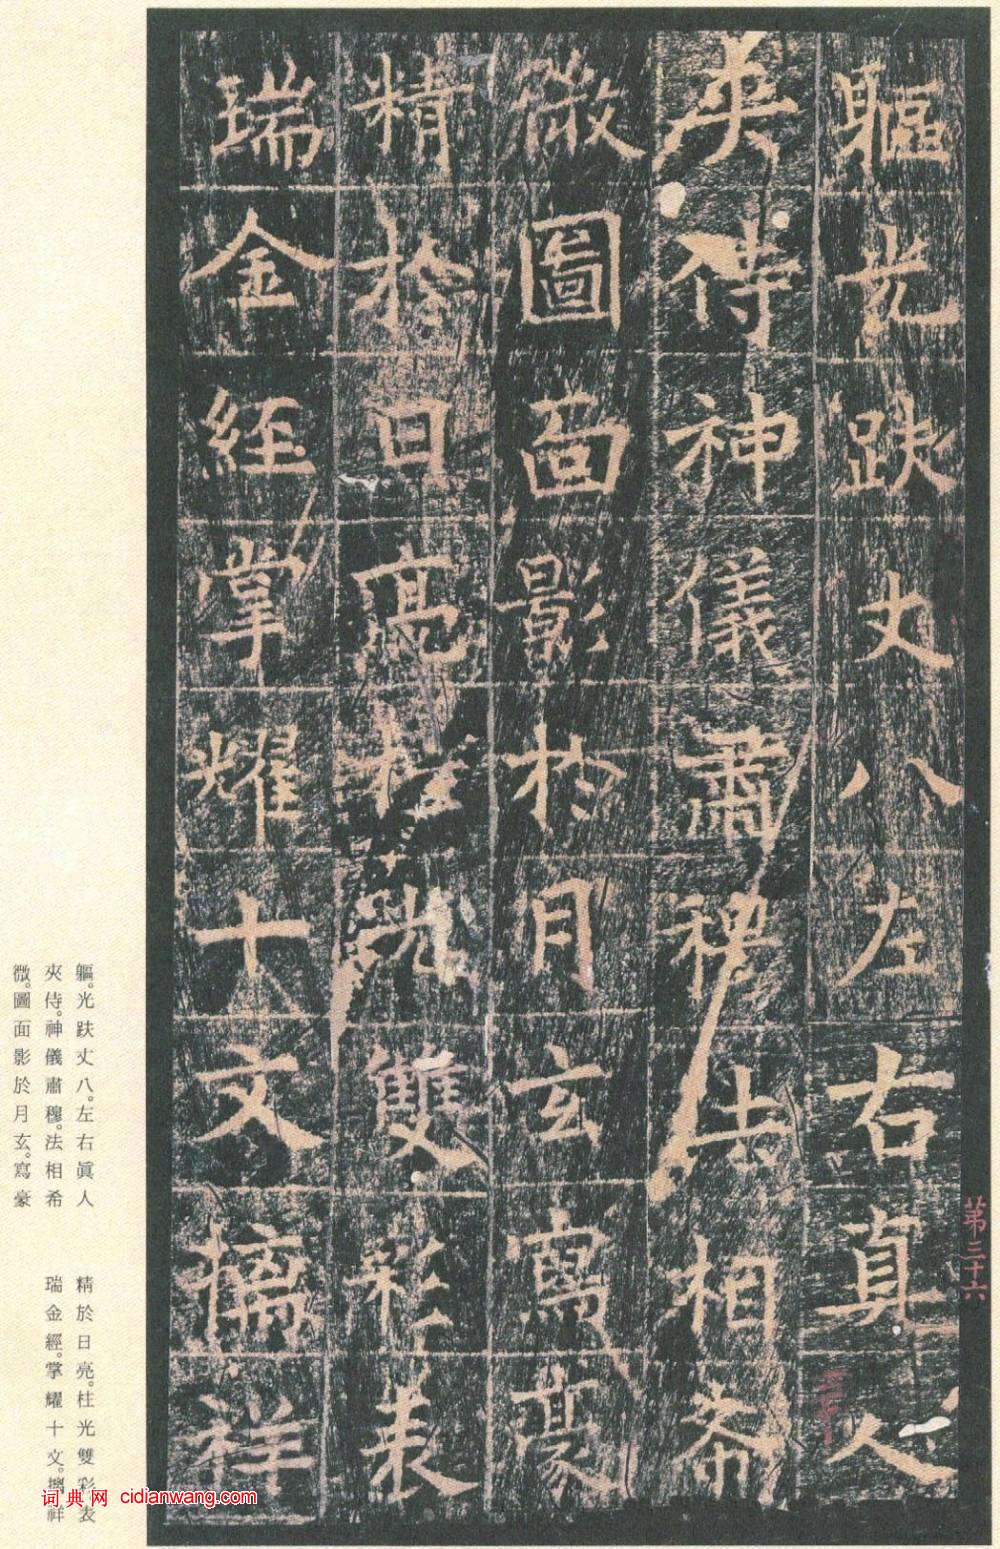 軀光趺丈八左右真人
夾侍神儀肅穆法相希
微圖面影於月玄寫豪
精於日亮柱光雙彩表
瑞金經掌耀十文摛祥
第三十六
軀。光趺丈八。左右眞人
夾侍。神儀肅穆。法相希
微。圖面影於月玄。寫豪
精於日亮。柱光雙彩表
瑞金經。掌耀十文。摛祥
词典网 cidianwang.com